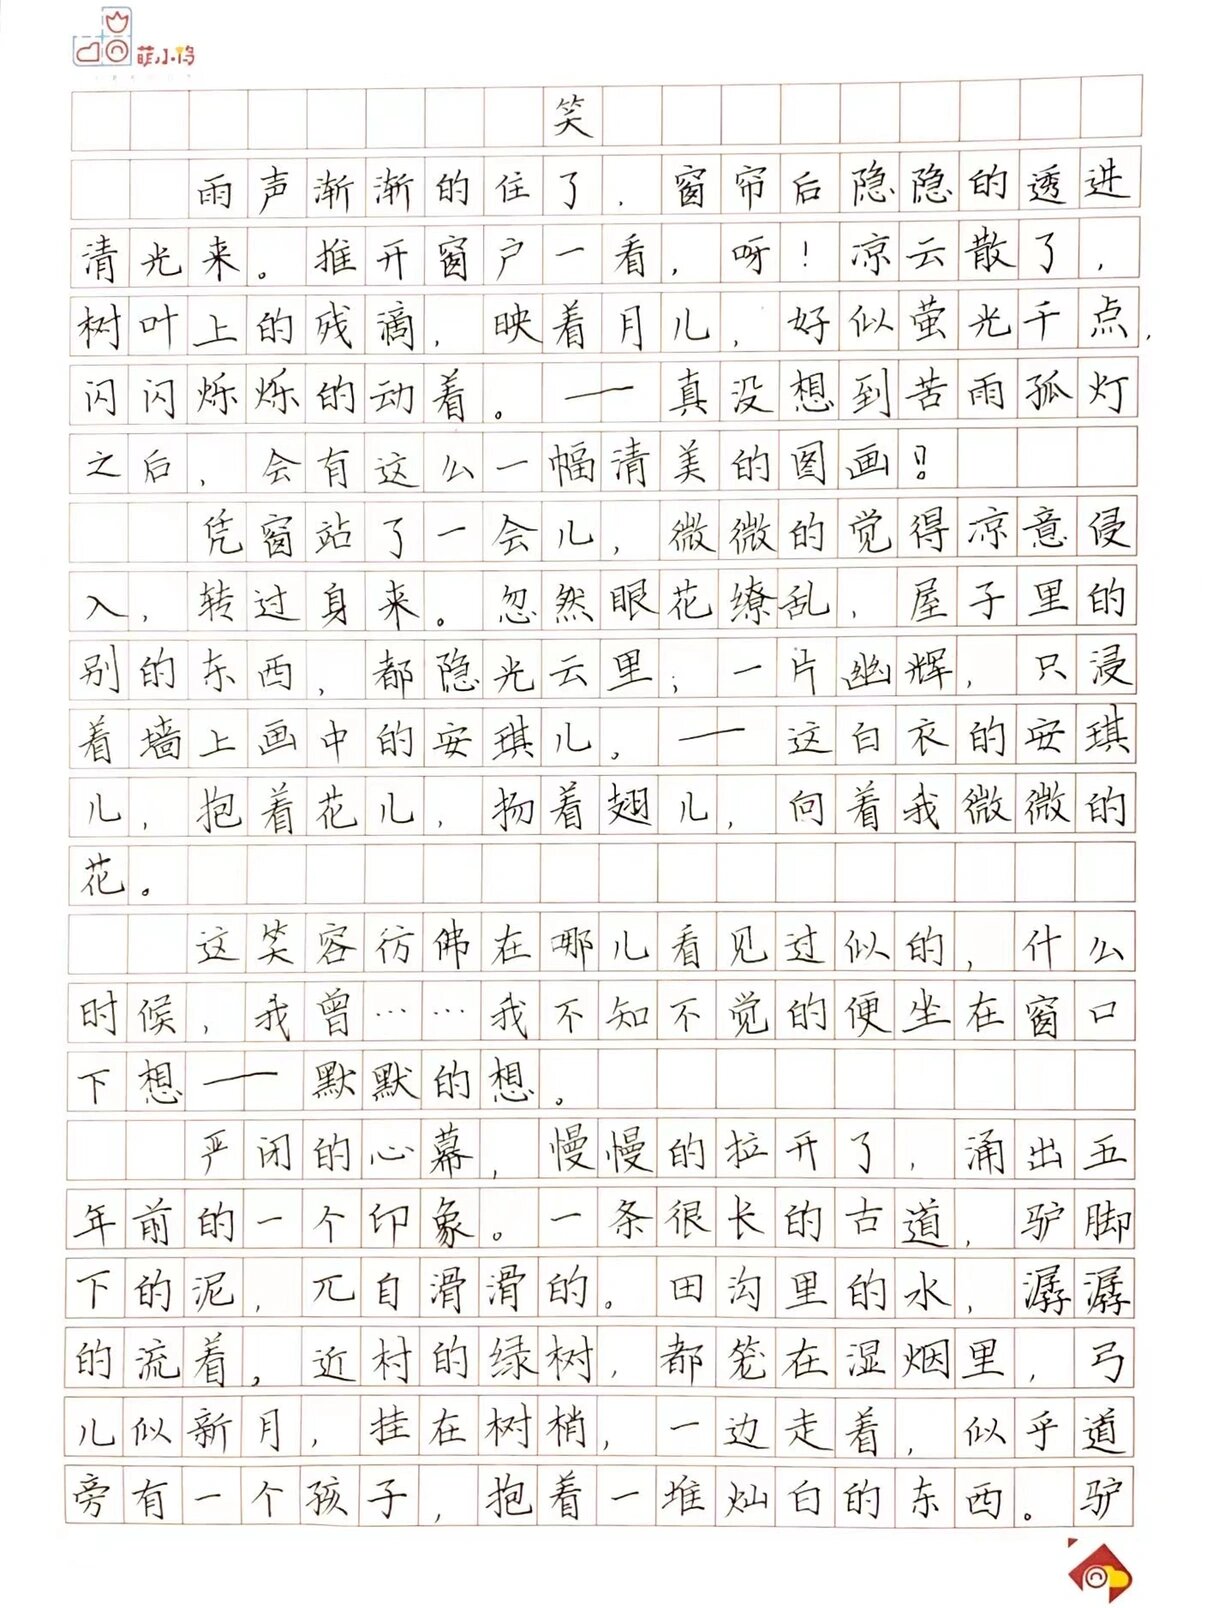 萌小鸽
笑
雨声渐渐的住了，窗帘后隐隐的透进
清光来。推开窗户一看，呀！凉云散了，
树叶上的残滴，映着月儿，好似萤光千点，
闪闪烁烁的动着。——真没想到苦雨孤灯
之后，会有这么一幅清美的图画！
凭窗站了一会儿，微微的觉得凉意侵
入，转过身来。忽然眼花缭乱，屋子里的
别的东西，都隐光云里；一片幽辉，只浸
着墙上画中的安琪儿。——这白衣的安琪
儿，抱着花儿，扬着翅儿，向着我微微的
花。
这笑容彷佛在哪儿看见过似的，什么
时候，我曾……我不知不觉的便坐在窗口
下想——默默的想。
严闭的心幕，慢慢的拉开了，涌出五
年前的一个印象。一条很长的古道，驴脚
下的泥，兀自滑滑的。田沟里的水，潺潺
的流着，近村的绿树，都笼在湿烟里，弓
儿似新月，挂在树梢，一边走着，似乎道
旁有一个孩子，抱着一堆灿白的东西。驴